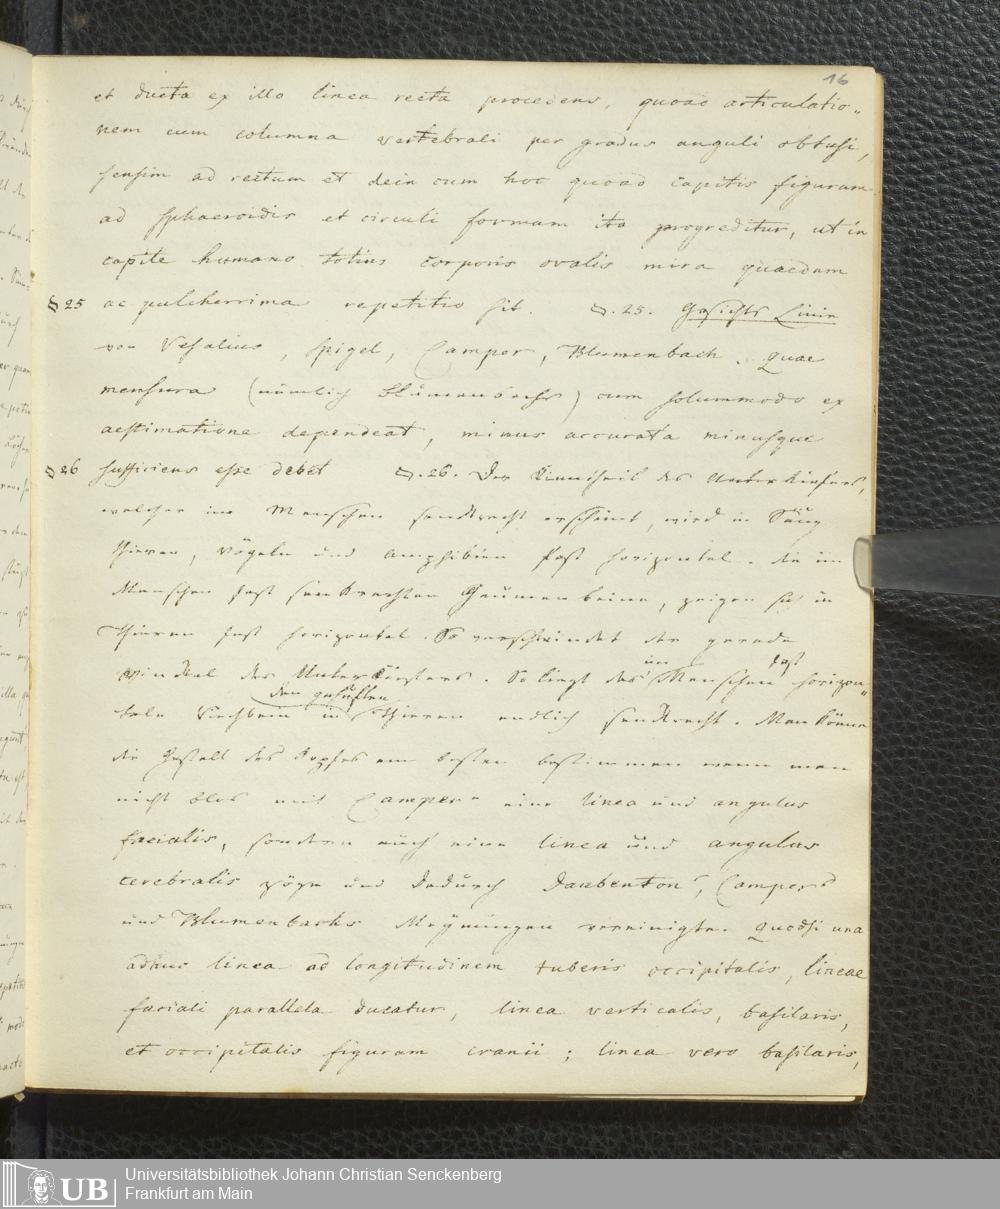 16
et ducta ex illo linea recta procedens, quoad articulatio„
nem cum columna vertebrali per gradus anguli obtusi,
sensim ad rectum et dein cum hoc quoad capitis figuram
ad sphaeroidis et circuli formam ita progreditur, ut in
capite humano totius corporis ovalis mira quaedam
§ 25 ac pulcherrima repetitio sit. §. 25. Gesichts Linie
von Vesalius, Spigel, Camper, Blumenbach. Quae
mensura (nämlich Blumenbachs) cum solummodo ex
aestimatione dependeat, minus accurata minusque
§ 26 sufficiens esse debet §. 26. Der Kinntheil des Unterkiefers,
welcher im Menschen senkrecht erscheint, wird in Säug
thieren, Vögeln und Amphibien fast horizontal. Die im
Menschen fast senkrechten Gaumenbeine, zeigen sich in
Thieren fast horizontal. So verschwindet der gerade
Winkel des Unterkiefers. So liegt das im Menschen fast horizon„
tale Siebbein in den Thieren endlich senkrecht. Man könne
die Gestalt des Kopfes am besten bestimmen wenn man
nicht blos mit Camper eine linea und angulus
facialis, sondern auch eine linea und angulus
cerebralis zöge und dadurch Daubentons, Campers
und Blumenbachs Meynungen vereinigte. Quodsi una
adhuc linea ad longitudinem tuberis occipitalis, lineae
faciali parallela ducatur, linea verticalis, basilaris,
et occipitalis figuram cranii; linea vero basilaris,
UB
Universitätsbibliothek Johann Christian Senckenberg
Frankfurt am Main